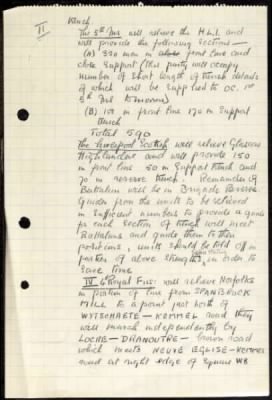 II
Trench
The 5th Fus will relieve the H.L.I. and
will provide the following Sections —
(A) 320 men in front line and
close Support (This party will occupy
number of short length of trench details
of which will be supplied to OC.
5th Fus tomorrow)
(B) 100 in front line 170 in Support
trench
Total 590
The Liverpool Scottish will relieve Glasgow
Highlanders and will provide 150
in front line 50 in Support trench and
70 in reserve trench. Remainder of
Battalion will be in Brigade Reserve.
Guides from the units to be relieved
in sufficient numbers to provide a guide
for each Section of trench will meet
Battalions and guide them to their
positions, units should be told off in
parties of above strengths in order to
save time
IV 4 Royal Fus: will relieve Norfolks
in portion of line from SPANBROCK
MILL to a point just north of
WYTSCHAETE - KEMMEL road they
will march independently by
LOCRE - DRANOUTRE - brown road
which meets NEUVE EGLISE - KEMMEL
road at right edge of square W8